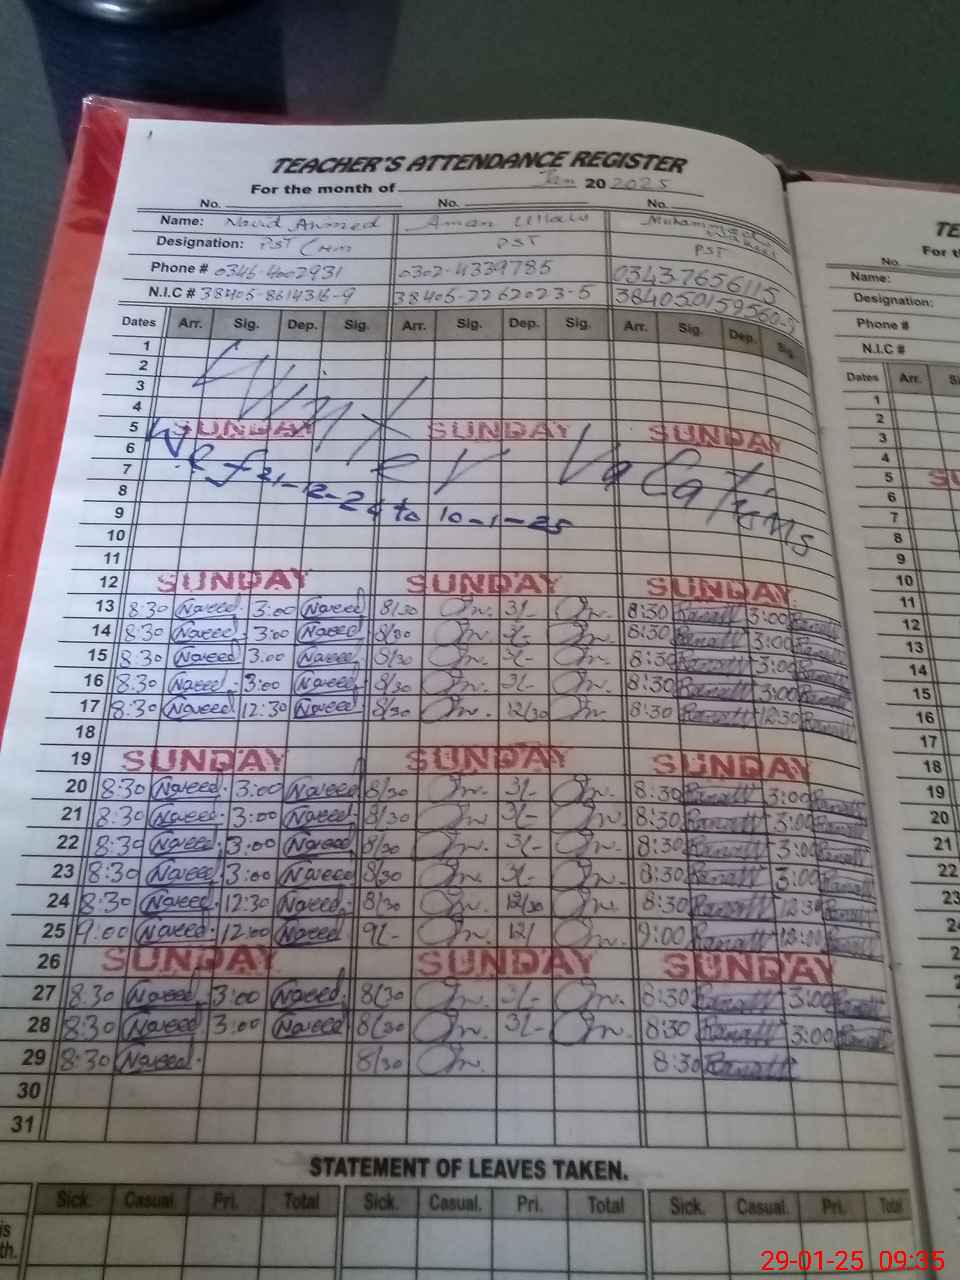 TEACHER'S ATTENDANCE REGISTER
For the month of Jan 20 2025
No. No. No.
Name: Navid Ahmed Aman Ullah Muhammad
Designation: PST PST PST
Phone # 0346-4002931 0302-4339785 03437656115
N.I.C # 38405-8614316-9 38405-2262023-5
Dates Arr. Sig. Dep. Sig. Arr. Sig. Dep. Sig. Arr. Sig. Dep. Sig.
1
2
3
4
5 SUNDAY SUNDAY SUNDAY
Winter Vacations
6
7
W.e.f 21-12-24 to 10-1-25
8
9
10
11
12 SUNDAY SUNDAY SUNDAY
13 8:30 Naveed 3:00 Naveed 8/30 3/- 8:30 3:00
14 8:30 Naveed 3:00 Naveed 8/30 3/- 8:30 3:00
15 8:30 Naveed 3:00 Naveed 8/30 3/- 8:30 3:00
16 8:30 Naveed 3:00 Naveed 8/30 3/- 8:30 3:00
17 8:30 Naveed 12:30 Naveed 8/30 12/30 8:30 12:30
18
19 SUNDAY SUNDAY SUNDAY
20 8:30 Naveed 3:00 Naveed 8/30 3/- 8:30 3:00
21 8:30 Naveed 3:00 Naveed 8/30 3/- 8:30 3:00
22 8:30 Naveed 3:00 Naveed 8/30 3/- 8:30 3:00
23 8:30 Naveed 3:00 Naveed 8/30 3/- 8:30 3:00
24 8:30 Naveed 12:30 Naveed 8/30 12/30 8:30 12:30
25 9:00 Naveed 12:00 Naveed 9/- 12/ 9:00 12:00
26 SUNDAY SUNDAY SUNDAY
27 8:30 Naveed 3:00 Naveed 8/30 3/- 8:30 3:00
28 8:30 Naveed 3:00 Naveed 8/30 3/- 8:30 3:00
29 8:30 Naveed 8/30 8:30
30
31
STATEMENT OF LEAVES TAKEN.
Sick. Casual. Pri. Total Sick. Casual. Pri. Total Sick. Casual. Pri. Total
is
th.
TE
For th
No.
Name:
Designation:
Phone #
N.I.C #
Dates Arr. Si
1
2
3
4
5 SU
6
7
8
9
10
11
12
13
14
15
16
17
18
19
20
21
22
23
24
29-01-25 09:35